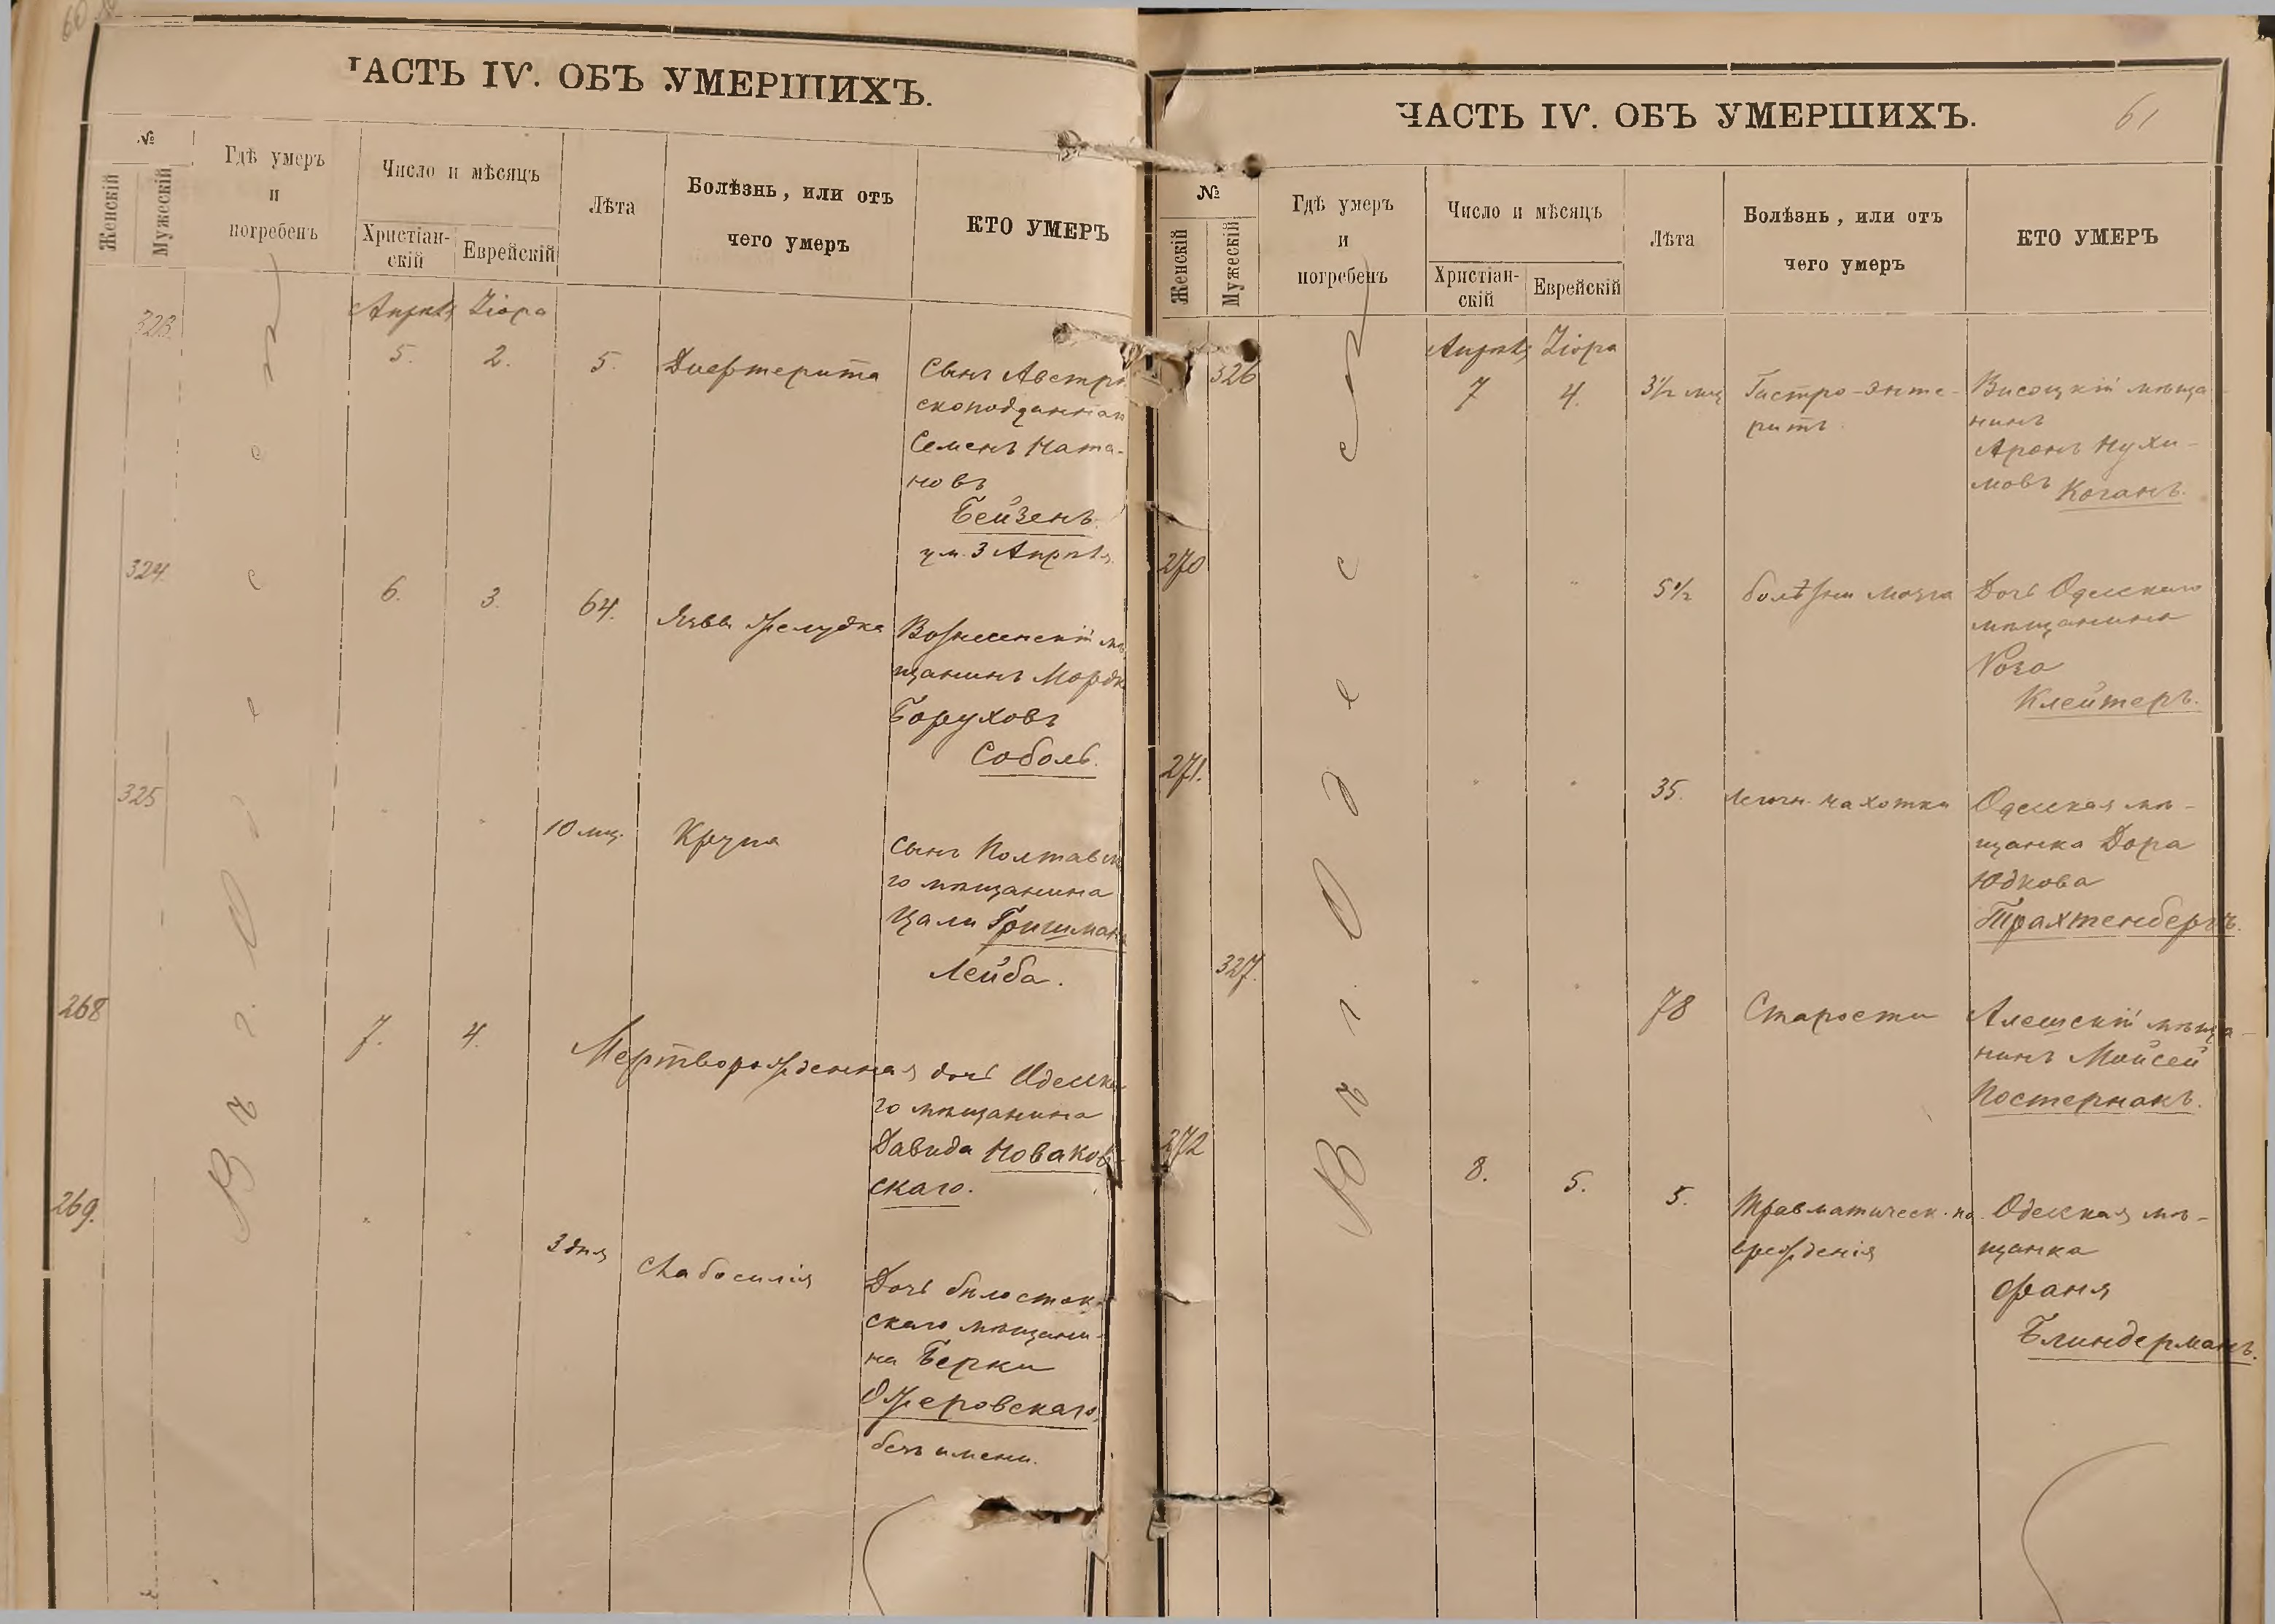 60
ЧАСТЬ IV. ОБЪ УМЕРШИХЪ.
№
Женскій
Мужескій
Гдѣ умеръ
и
погребенъ
Число и мѣсяцъ
Христіан-
скій
Еврейскій
Лѣта
Болѣзнь, или отъ
чего умеръ
КТО УМЕРЪ
Въ г. Одессѣ
Апрѣля
Ziopa
323.
5.
2.
5.
Дифтерита
Сынъ Австрій
скоподданнаго
Семенъ Ната-
новъ
Бейзенъ.
ум. 3 Апрѣля.
324.
6.
3.
64.
Язвы желудка
Вознесенскій мѣ
щанинъ Мордко
Боруховъ
Соболь.
325
"
"
10 мц.
Крупа
Сынъ Полтавска
го мѣщанина
Цали Гришмана
Лейба.
268
7.
4.
Мертворожденная дочь Одесска
го мѣщанина
Давида Новаков-
скаго.
269.
"
"
3 дня
Слабосилія
Дочь бѣлосток-
скаго мѣщани-
на Берки
Ожеровскаго,
безъ имени.
61
ЧАСТЬ IV. ОБЪ УМЕРШИХЪ.
№
Женскій
Мужескій
Гдѣ умеръ
и
погребенъ
Число и мѣсяцъ
Христіан-
скій
Еврейскій
Лѣта
Болѣзнь, или отъ
чего умеръ
КТО УМЕРЪ
Въ г. Одессѣ
Апрѣля
Ziopa
326
7
4.
3½ мц
Гастро-энте-
ритъ
Высоцкій мѣща-
нинъ
Аронъ Нухи-
мовъ Коганъ.
270
"
"
5½
болѣзни мозга
Дочь Одесскаго
мѣщанина
Роза
Клейтеръ.
271.
"
"
35.
Легочн. чахотки
Одесская мѣ-
щанка Дора
Юдкова
Трахтенбергъ.
327.
"
"
78
Старости
Алешскій мѣща-
нинъ Мойсей
Постернакъ.
272
8.
5.
5.
Травматическ. по
врежденія
Одесская мѣ-
щанка
Фаня
Блиндерманъ.